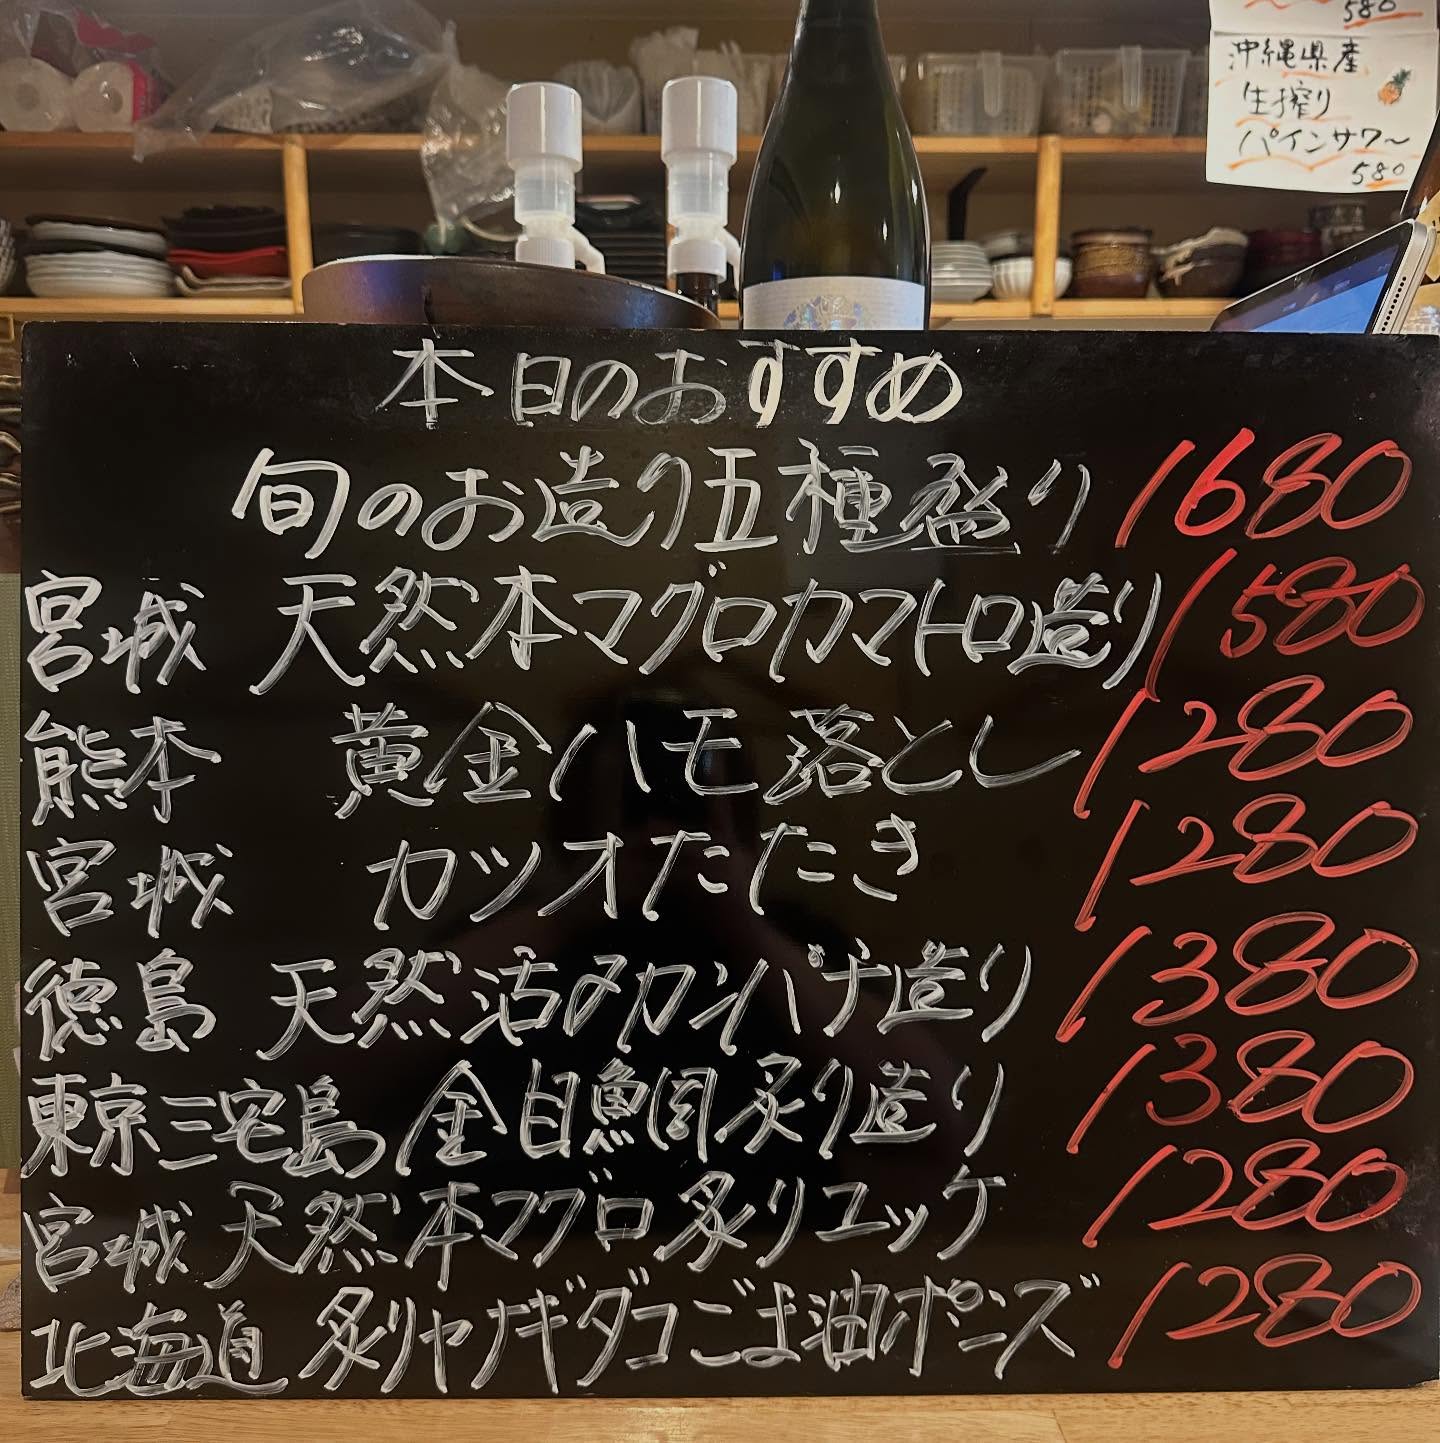 580
沖縄県産
生搾り
パインサワー
580
本日のおすすめ
旬のお造り五種盛り 1680
宮城 天然本マグロカマトロ造り 1580
熊本 黄金ハモ落とし 1280
宮城 カツオたたき 1280
徳島 天然活〆カンパチ造り 1380
東京三宅島 金目鯛炙り造り 1380
宮城 天然本マグロ炙りユッケ 1280
北海道 炙りヤナギダコごま油ポンズ 1280